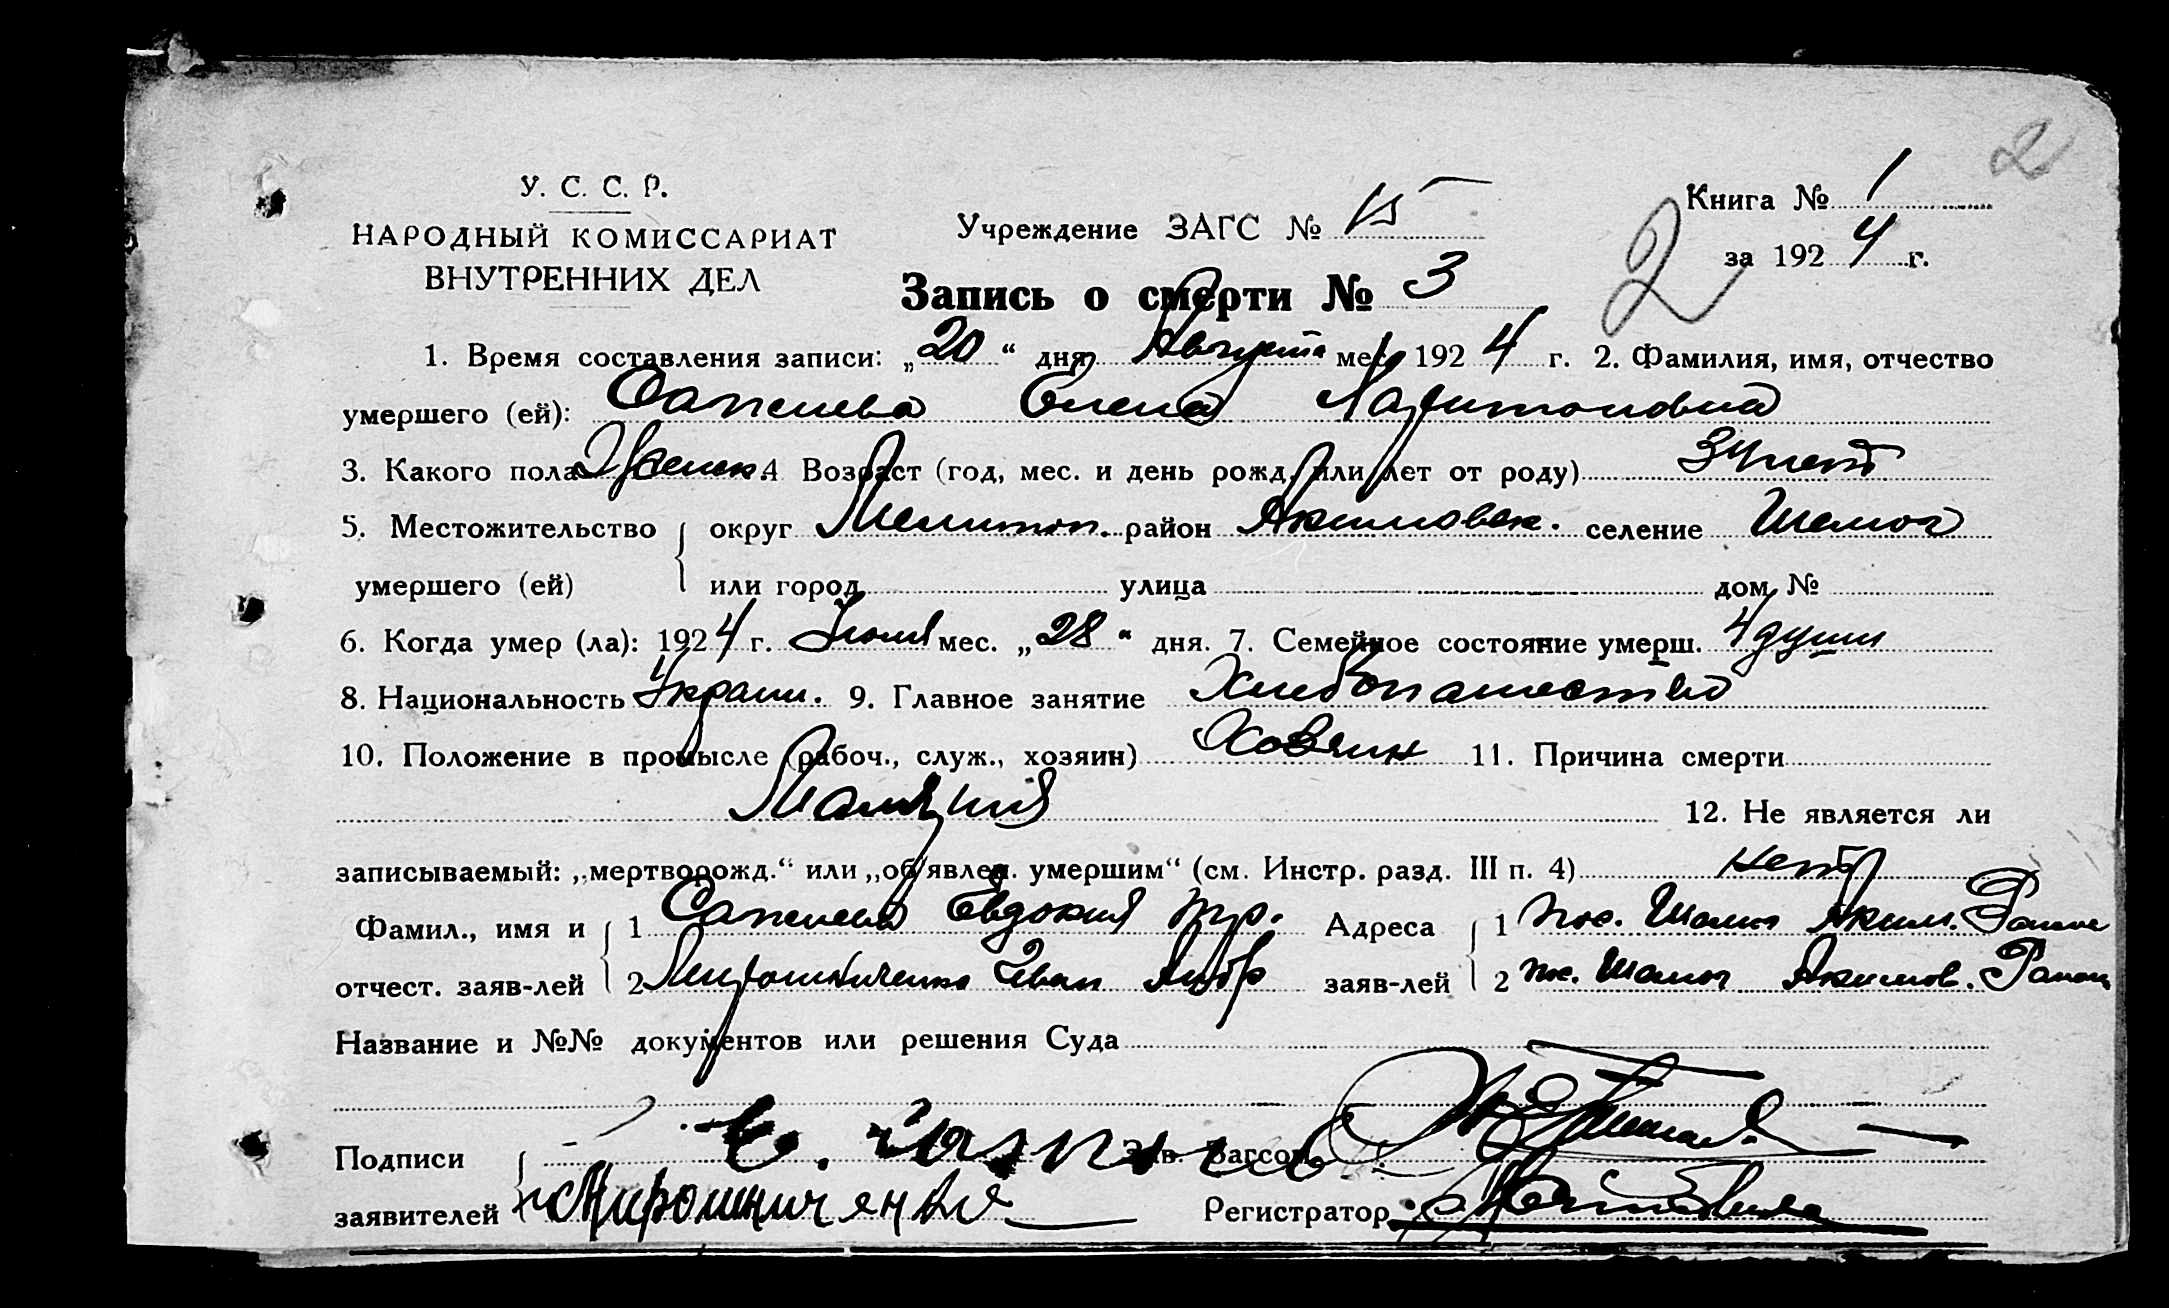 2
У. С. С. Р.
НАРОДНЫЙ КОМИССАРИАТ
ВНУТРЕННИХ ДЕЛ
Учреждение ЗАГС № 15
Книга № 1
за 1924 г.
2
Запись о смерти № 3
1. Время составления записи: „20“ дня Августа мес. 1924 г. 2. Фамилия, имя, отчество
умершего (ей): Сапелева Елена Харитоновна
3. Какого пола Женск. 4 Возраст (год, мес. и день рожд. или лет от роду) 34 лет
5. Местожительство округ Мелитоп. район Акимовск. селение Шамог
умершего (ей) или город улица дом №
6. Когда умер (ла): 1924 г. Июля мес. „28“ дня. 7. Семейное состояние умерш. 4 души
8. Национальность Украин. 9. Главное занятие Хлебопашество
10. Положение в промысле (рабоч., служ., хозяин) Хозяин 11. Причина смерти
Малярия 12. Не является ли
записываемый: „мертворожд.“ или „об'явлен. умершим“ (см. Инстр. разд. III п. 4) нет
Фамил., имя и 1 Сапелева Евдокия Адреса 1 пос. Шамог Аким. Район
отчест. заяв-лей 2 Мирошниченко Иван заяв-лей 2 пос. Шамог Акимов. Район
Название и №№ документов или решения Суда
Подписи Зав. Загсом
заявителей Мирошниченко Регистратор